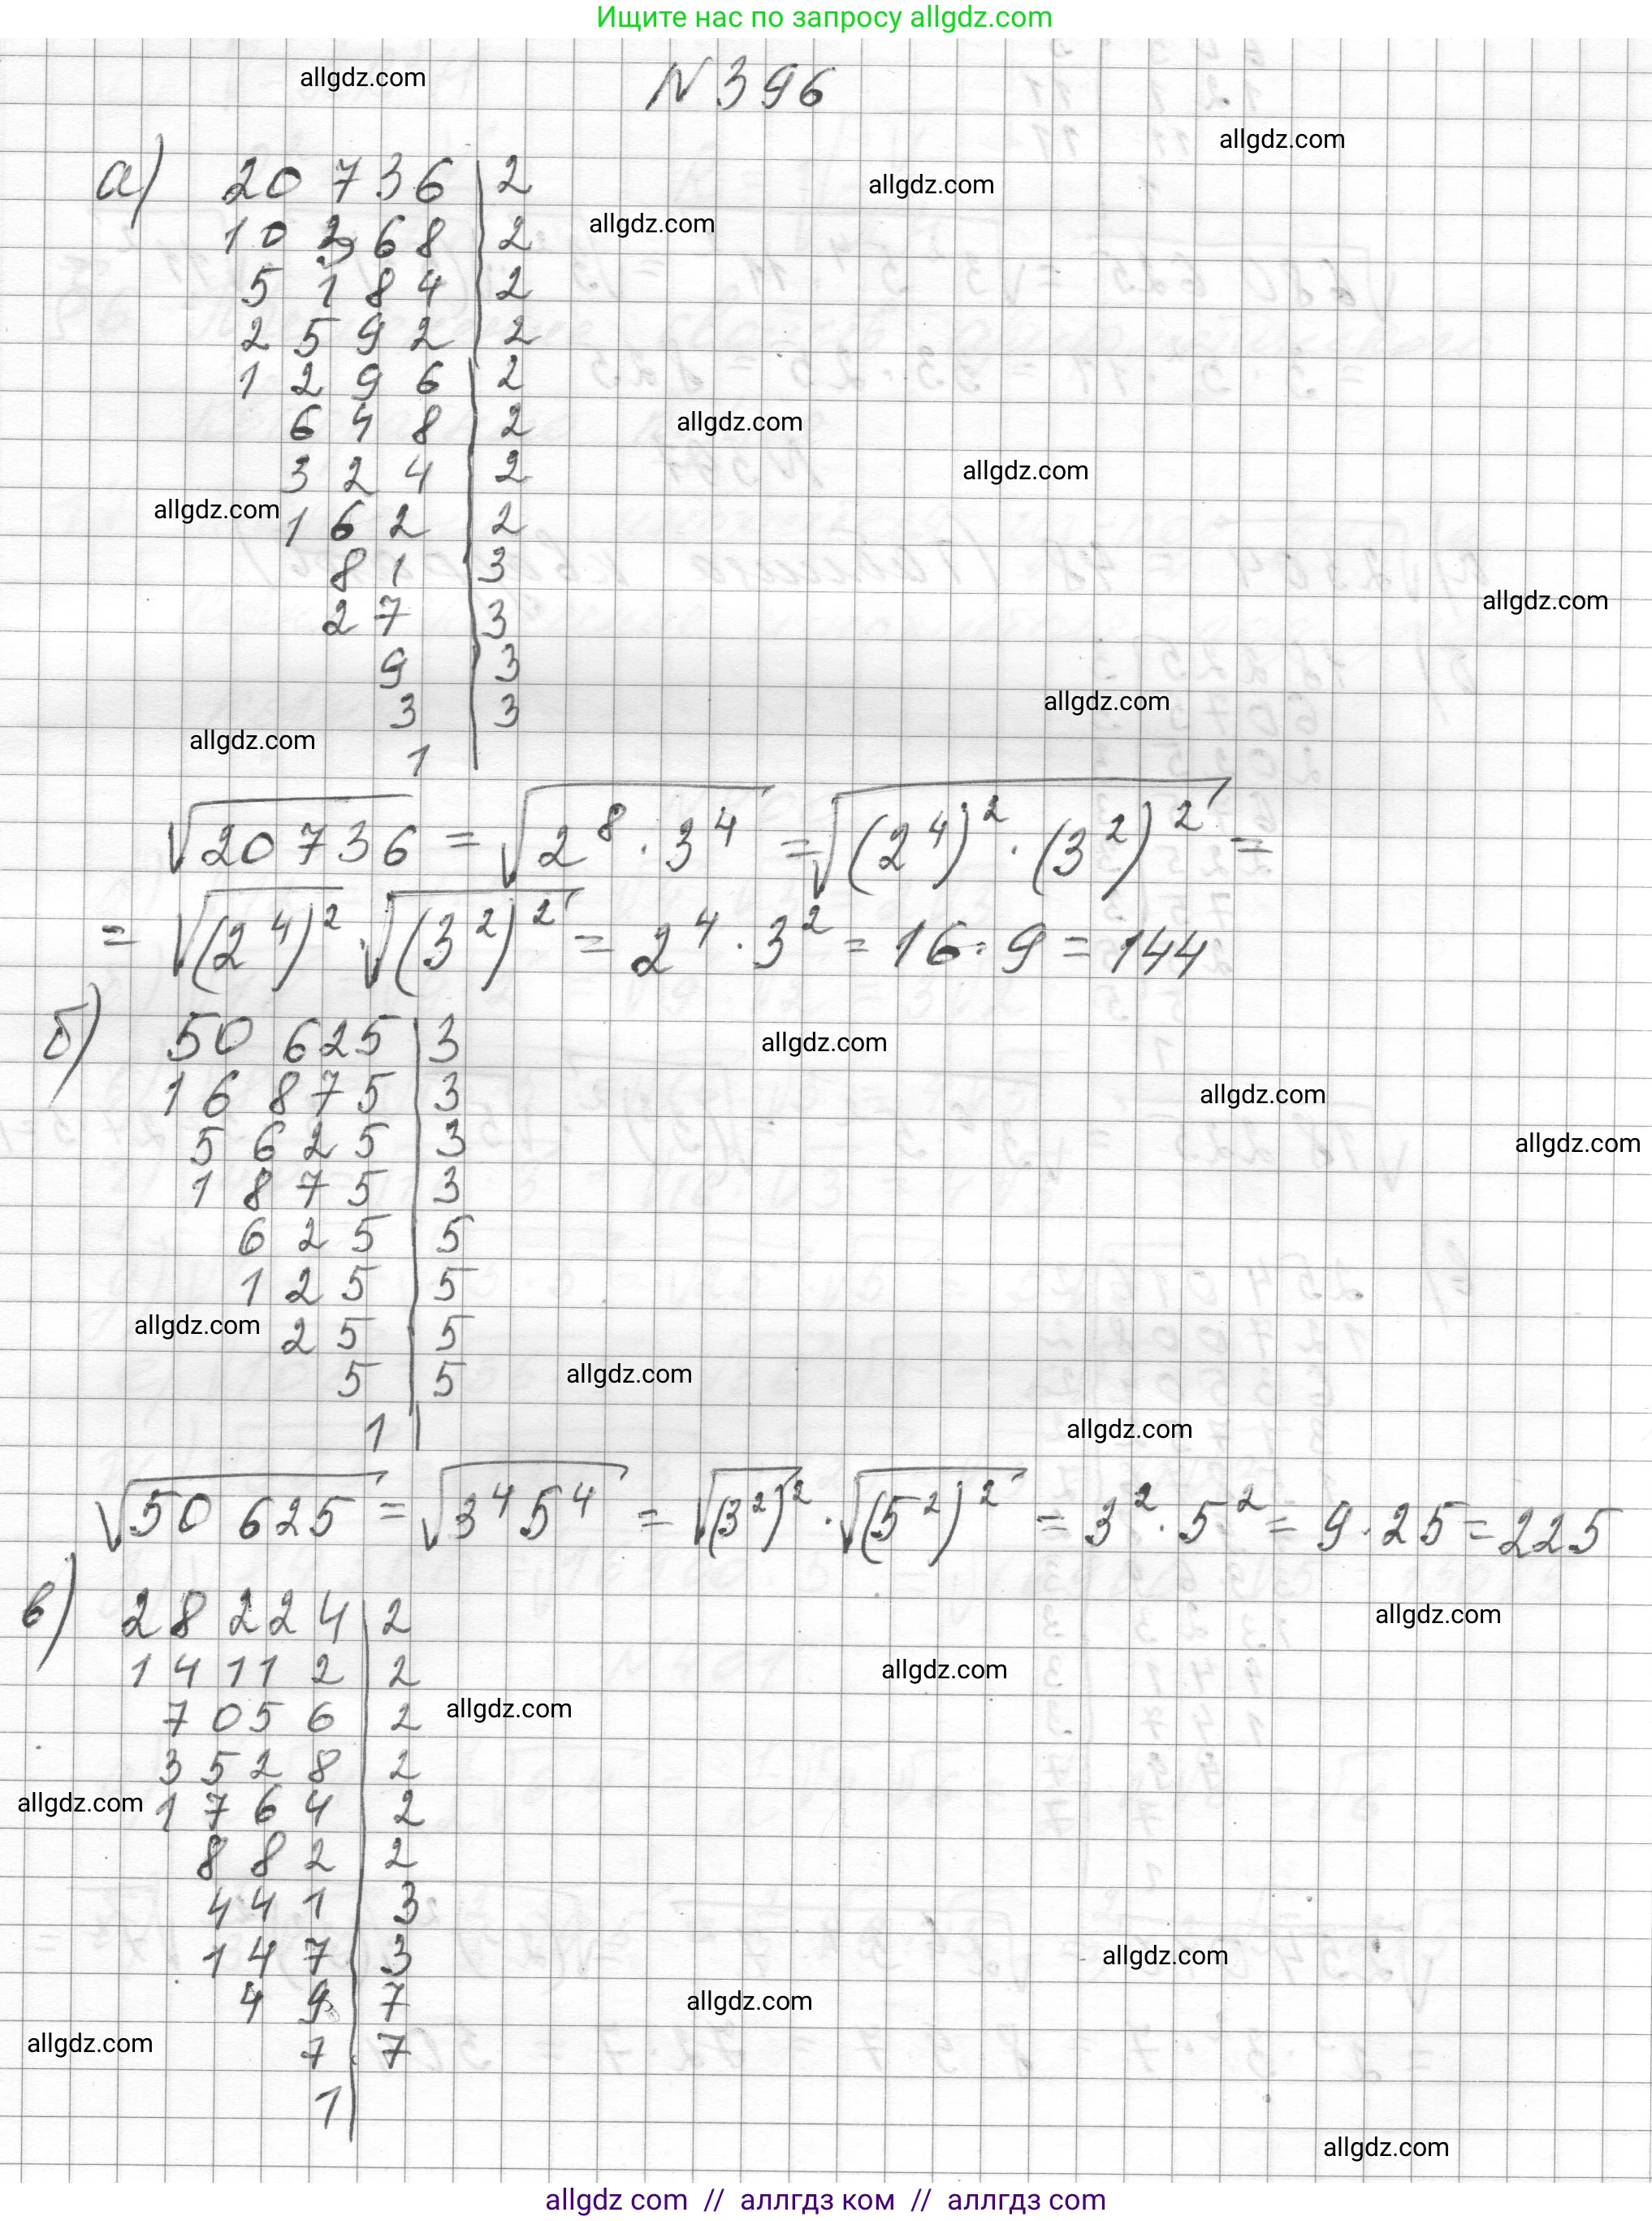 Ищите нас по запросу allgdz.com
N 396
allgdz.com
allgdz.com
а) 20 736 | 2
allgdz.com
allgdz.com
10 368 | 2
5 184 | 2
2592 | 2
1296 | 2
648 | 2
allgdz.com
324 | 2
allgdz.com
162 | 2
allgdz.com
81 | 3
allgdz.com
27 | 3
9 | 3
3 | 3
allgdz.com
allgdz.com
1
√20736 = √2^8 · 3^4 = √(2^4)^2 · (3^2)^2 =
= √(2^4)^2 · √(3^2)^2 = 2^4 · 3^2 = 16 · 9 = 144
б) 50 625 | 3
allgdz.com
16 875 | 3
allgdz.com
5625 | 3
allgdz.com
1875 | 3
625 | 5
125 | 5
allgdz.com
25 | 5
5 | 5
allgdz.com
1
allgdz.com
√50 625 = √3^4 5^4 = √(3^2)^2 · √(5^2)^2 = 3^2 · 5^2 = 9 · 25 = 225
в) 28 224 | 2
allgdz.com
14112 | 2
allgdz.com
7056 | 2
allgdz.com
3528 | 2
allgdz.com
1764 | 2
882 | 2
441 | 3
147 | 3
allgdz.com
49 | 7
allgdz.com
7 | 7
allgdz.com
1
allgdz.com
allgdz com // аллгдз ком // аллгдз com